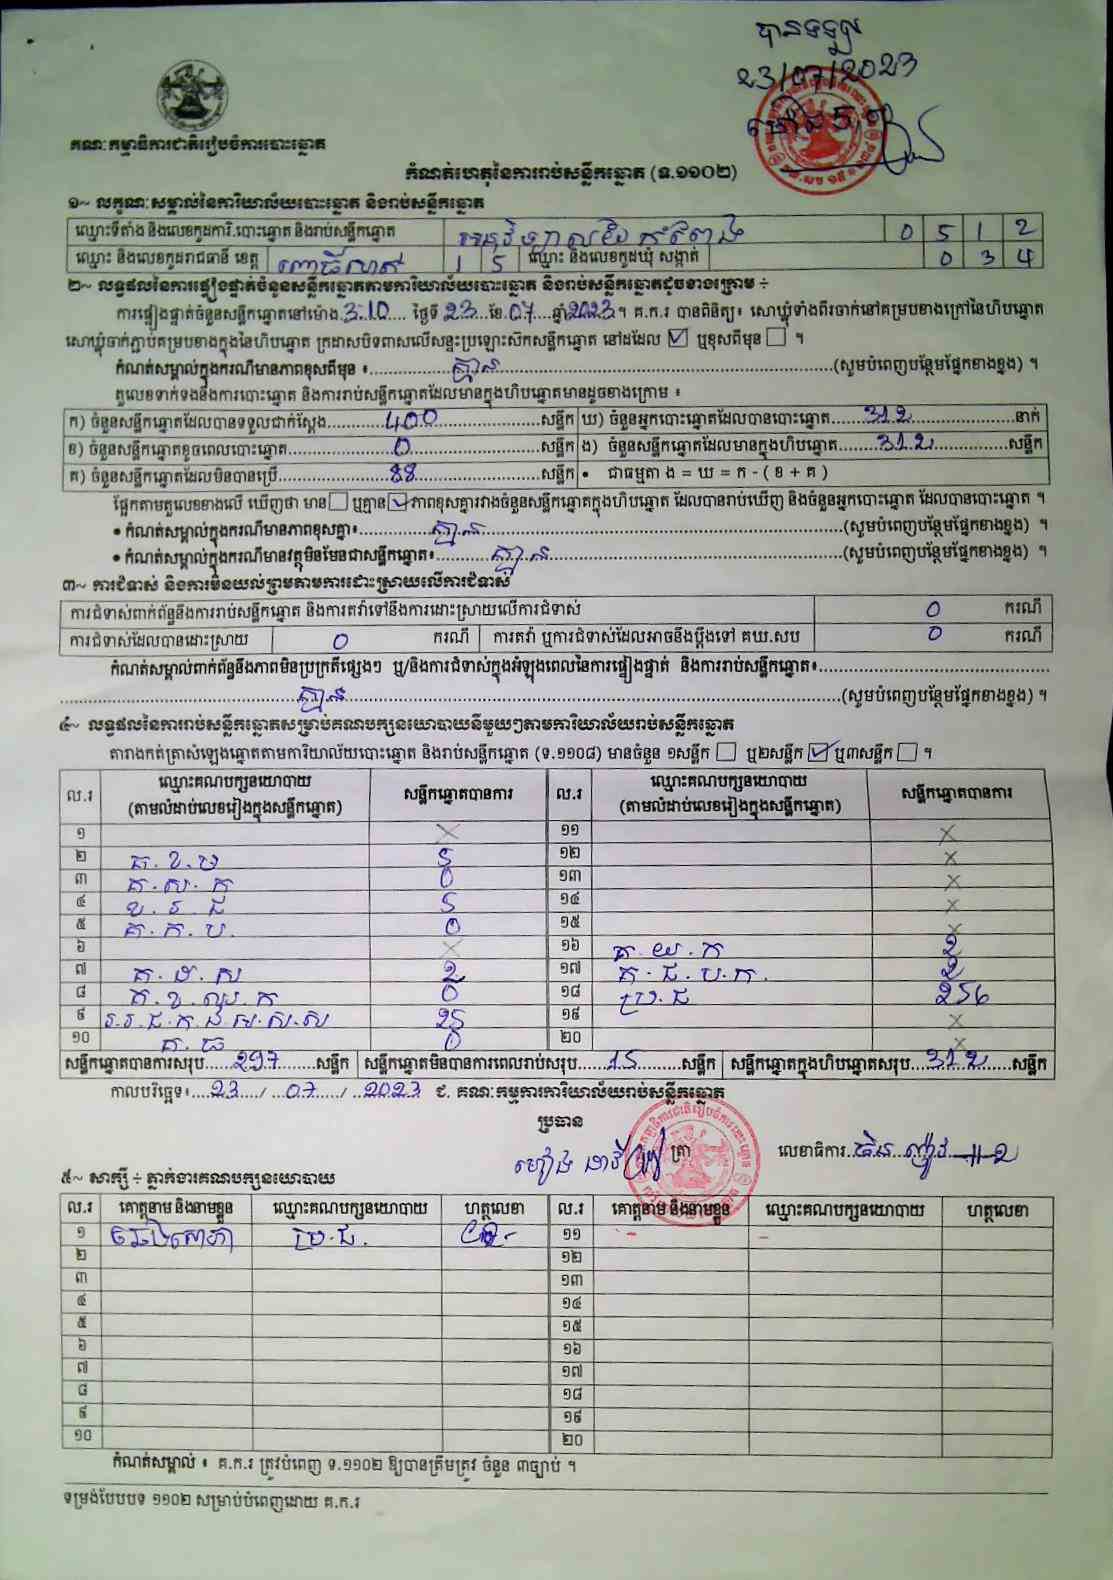 បានទទួល
23/07/2023
គណៈកម្មាធិការជាតិរៀបចំការបោះឆ្នោត
កំណត់ហេតុនៃការរាប់សន្លឹកឆ្នោត (ទ.១១០២)
១~ លក្ខណៈសម្គាល់នៃការិយាល័យបោះឆ្នោត និងរាប់សន្លឹកឆ្នោត
ឈ្មោះទីតាំង និងលេខកូដការិ.បោះឆ្នោត និងរាប់សន្លឹកឆ្នោត 0 5 1 2
ឈ្មោះ និងលេខកូដរាជធានី ខេត្ត ពោធិ៍សាត់ 1 5 ឈ្មោះ និងលេខកូដឃុំ សង្កាត់ 0 3 4
២~ លទ្ធផលនៃការផ្ទៀងផ្ទាត់ចំនួនសន្លឹកឆ្នោតតាមការិយាល័យបោះឆ្នោត និងរាប់សន្លឹកឆ្នោតដូចខាងក្រោម ÷
ការផ្ទៀងផ្ទាត់ចំនួនសន្លឹកឆ្នោតនៅម៉ោង 3:10 ថ្ងៃទី 23 ខែ 07 ឆ្នាំ 2023 ។ គ.ក.រ បានពិនិត្យ៖ សោឃ្លុំទាំងពីរចាក់នៅគម្របខាងក្រៅនៃហិបឆ្នោត
សោឃ្លុំចាក់ភ្ជាប់គម្របខាងក្នុងនៃហិបឆ្នោត ក្រដាសបិទពាសលើសន្ទះប្រឡោះសៀកសន្លឹកឆ្នោត នៅដដែល ☑ ឬខុសពីមុន ☐ ។
កំណត់សម្គាល់ក្នុងករណីមានភាពខុសពីមុន ៖ គ្មាន (សូមបំពេញបន្ថែមផ្នែកខាងខ្នង) ។
តួលេខទាក់ទងនឹងការបោះឆ្នោត និងការរាប់សន្លឹកឆ្នោតដែលមានក្នុងហិបឆ្នោតមានដូចខាងក្រោម ៖
ក) ចំនួនសន្លឹកឆ្នោតដែលបានទទួលជាក់ស្តែង 400 សន្លឹក ឃ) ចំនួនអ្នកបោះឆ្នោតដែលបានបោះឆ្នោត 312 នាក់
ខ) ចំនួនសន្លឹកឆ្នោតខូចពេលបោះឆ្នោត 0 សន្លឹក ង) ចំនួនសន្លឹកឆ្នោតដែលមានក្នុងហិបឆ្នោត 312 សន្លឹក
គ) ចំនួនសន្លឹកឆ្នោតដែលមិនបានប្រើ 88 សន្លឹក • ជាធម្មតា ង = ឃ = ក - ( ខ + គ )
ផ្អែកតាមតួលេខខាងលើ ឃើញថា មាន ☐ ឬគ្មាន ☑ ភាពខុសគ្នារវាងចំនួនសន្លឹកឆ្នោតក្នុងហិបឆ្នោត ដែលបានរាប់ឃើញ និងចំនួនអ្នកបោះឆ្នោត ដែលបានបោះឆ្នោត ។
• កំណត់សម្គាល់ក្នុងករណីមានភាពខុសគ្នា៖ គ្មាន (សូមបំពេញបន្ថែមផ្នែកខាងខ្នង) ។
• កំណត់សម្គាល់ក្នុងករណីមានវត្ថុមិនមែនជាសន្លឹកឆ្នោត៖ គ្មាន (សូមបំពេញបន្ថែមផ្នែកខាងខ្នង) ។
៣~ ការជំទាស់ និងការមិនយល់ព្រមតាមការដោះស្រាយលើការជំទាស់
ការជំទាស់ពាក់ព័ន្ធនឹងការរាប់សន្លឹកឆ្នោត និងការតវ៉ាទៅនឹងការដោះស្រាយលើការជំទាស់ 0 ករណី
ការជំទាស់ដែលបានដោះស្រាយ 0 ករណី ការតវ៉ា ឬការជំទាស់ដែលអាចនឹងប្តឹងទៅ គឃ.សប 0 ករណី
កំណត់សម្គាល់ពាក់ព័ន្ធនឹងភាពមិនប្រក្រតីផ្សេងៗ ឬ/និងការជំទាស់ក្នុងអំឡុងពេលនៃការផ្ទៀងផ្ទាត់ និងការរាប់សន្លឹកឆ្នោត៖
គ្មាន (សូមបំពេញបន្ថែមផ្នែកខាងខ្នង) ។
៤~ លទ្ធផលនៃការរាប់សន្លឹកឆ្នោតសម្រាប់គណបក្សនយោបាយនីមួយៗតាមការិយាល័យរាប់សន្លឹកឆ្នោត
តារាងកត់ត្រាសំឡេងឆ្នោតតាមការិយាល័យបោះឆ្នោត និងរាប់សន្លឹកឆ្នោត (ទ.១១០៨) មានចំនួន ១សន្លឹក ☐ ឬ២សន្លឹក ☑ ឬ៣សន្លឹក ☐ ។
ល.រ ឈ្មោះគណបក្សនយោបាយ (តាមលំដាប់លេខរៀងក្នុងសន្លឹកឆ្នោត) សន្លឹកឆ្នោតបានការ ល.រ ឈ្មោះគណបក្សនយោបាយ (តាមលំដាប់លេខរៀងក្នុងសន្លឹកឆ្នោត) សន្លឹកឆ្នោតបានការ
១ X ១១ X
២ គ.ខ.ម 5 ១២ X
៣ គ.ស.ក 0 ១៣ X
៤ ឃ.រ.ជ 5 ១៤ X
៥ គ.ក.ប. 0 ១៥ X
៦ X ១៦ គ.យ.ក 2
៧ គ.ដ.ស 2 ១៧ គ.ជ.ប.ក. 2
៨ គ.ខ.ឈ.ក 0 ១៨ ប្រ.ជ 256
៩ 25 ១៩ X
១០ គ.ធ 0 ២០ X
សន្លឹកឆ្នោតបានការសរុប 297 សន្លឹក សន្លឹកឆ្នោតមិនបានការពេលរាប់សរុប 15 សន្លឹក សន្លឹកឆ្នោតក្នុងហិបឆ្នោតសរុប 312 សន្លឹក
កាលបរិច្ឆេទ៖ 23 / 07 / 2023 ជ. គណៈកម្មការការិយាល័យរាប់សន្លឹកឆ្នោត
ប្រធាន
ត្រា លេខាធិការ
៥~ សាក្សី ÷ ភ្នាក់ងារគណបក្សនយោបាយ
ល.រ គោត្តនាម និងនាមខ្លួន ឈ្មោះគណបក្សនយោបាយ ហត្ថលេខា ល.រ គោត្តនាម និងនាមខ្លួន ឈ្មោះគណបក្សនយោបាយ ហត្ថលេខា
១ ប្រ.ជ. ១១ - -
២ ១២
៣ ១៣
៤ ១៤
៥ ១៥
៦ ១៦
៧ ១៧
៨ ១៨
៩ ១៩
១០ ២០
កំណត់សម្គាល់ ៖ គ.ក.រ ត្រូវបំពេញ ទ.១១០២ ឱ្យបានត្រឹមត្រូវ ចំនួន ៣ច្បាប់ ។
ទម្រង់បែបបទ ១១០២ សម្រាប់បំពេញដោយ គ.ក.រ